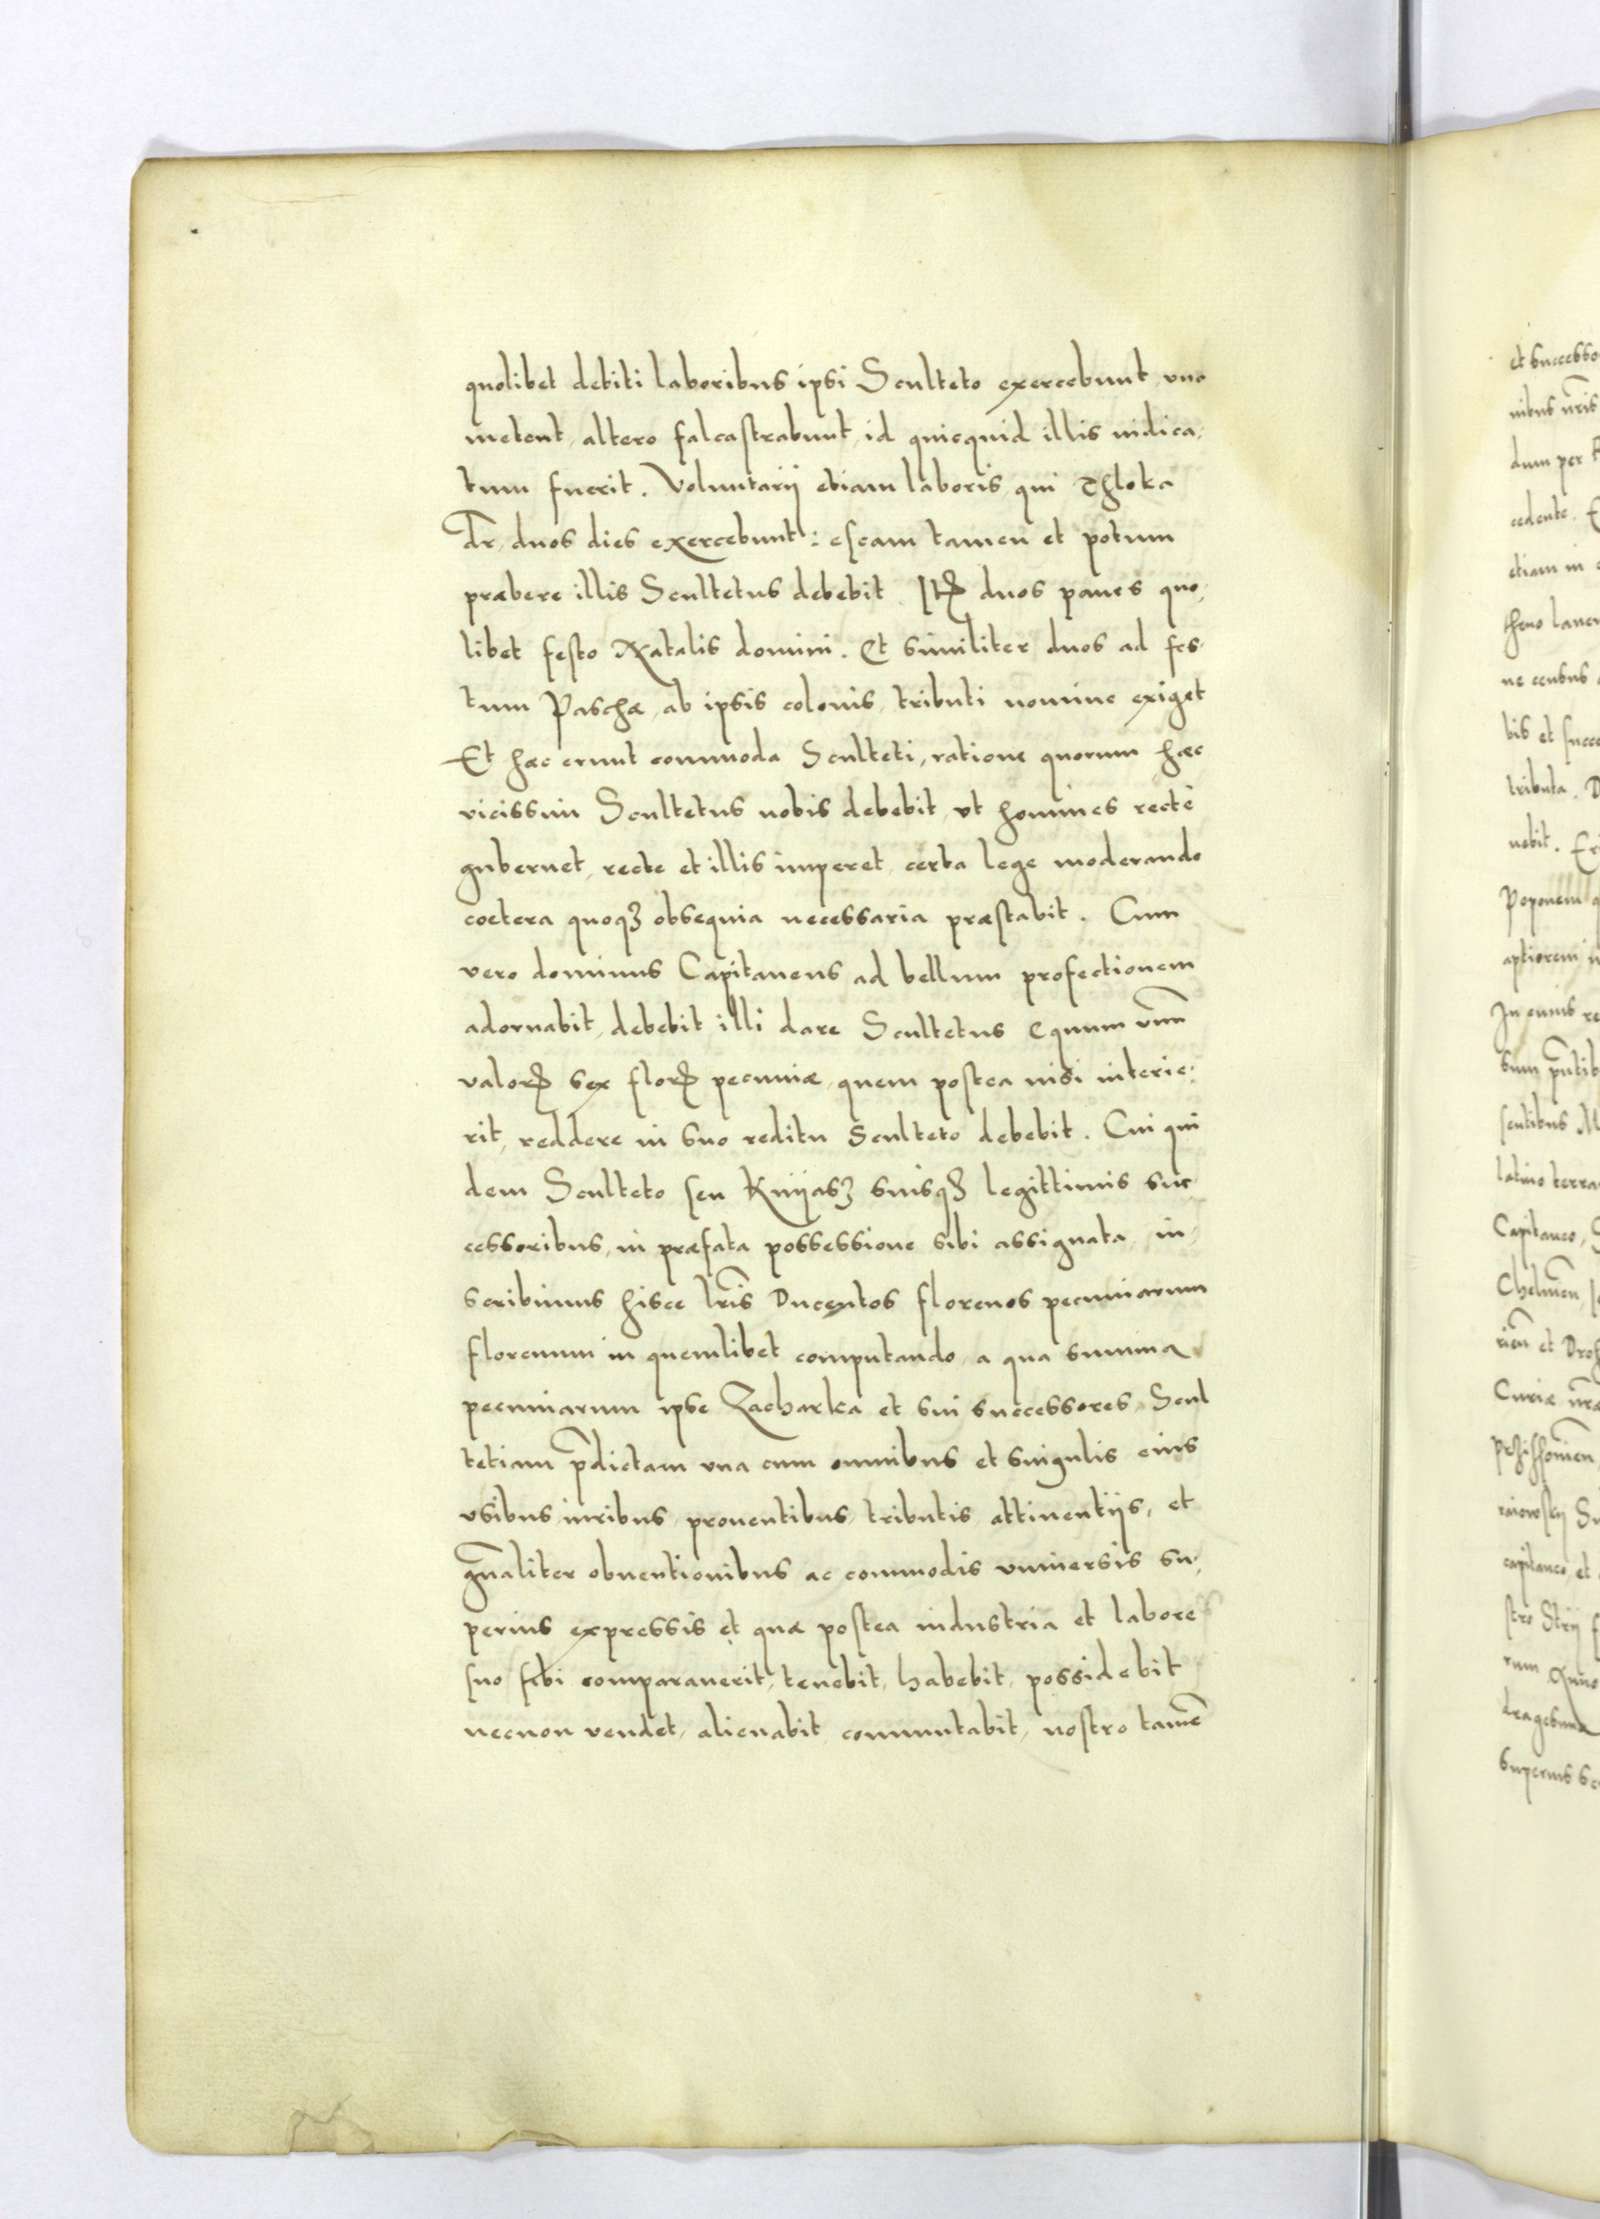 quolibet debiti laboribus ipsi Sculteto exercebunt, vno
metent, altero falcastrabunt, id quicquid illis indica,
tum fuerit. Voluntarij etiam laboris, qui Thloka
dr̃, duos dies exercebunt: escam tamen et potum
præbere illis Scultetus debebit. Itꝫ duos panes quo,
libet festo Natalis domini. Et similiter duos ad fes-
tum Paschæ, ab ipsis colonis, tributi nomine exiget
Et hæc erunt commoda Sculteti, ratione quorum hæc
vicissim Scultetus nobis debebit, vt homines rectè
gubernet, recte et illis imperet, certa lege moderando
coetera quoqꝫ obsequia necessaria præstabit. Cum
vero dominus Capitaneus ad bellum profectionem
adornabit, debebit illi dare Scultetus Equum vnũ
valorꝫ sex florꝫ pecuniæ, quem postea nisi interie:
rit, reddere in suo reditu Sculteto debebit. Cui qui
dem Sculteto seu Knijasꝫ suisqꝫ legittimis suc
cessoribus, in præfata possessione sibi assignata, in,
scribimus hisce lr̃is Ducentos florenos pecuniarum
florenum in quemlibet computando, a qua summa
pecuniarum ipse Zacharka et sui successores, Scul
tetiam p̃dictam vna cum omnibus et singulis eius
vsibus, iuribus, prouentibus, tributis, attinentijs, et
gñaliter obuentionibus ac commodis vniuersis su,
perius expressis et quæ postea industria et labore
suo sibi comparauerit, tenebit, habebit, possidebit
necnon vendet, alienabit, commutabit, nostro tamẽ
et successo
nibus nr̃is
dum per
cedente. E
etiam in
ne census
bis et succe
tributa. D
nebit. Er
Poponem q
aptiorem
In cuius re
sum p̃ntib
sentibus M
latino terra
Capitaneo, S
Chelmeñ
rieñ et Droh
Curiæ nr̃æ
capitaneo, et
stro Strij
rum
superius sc